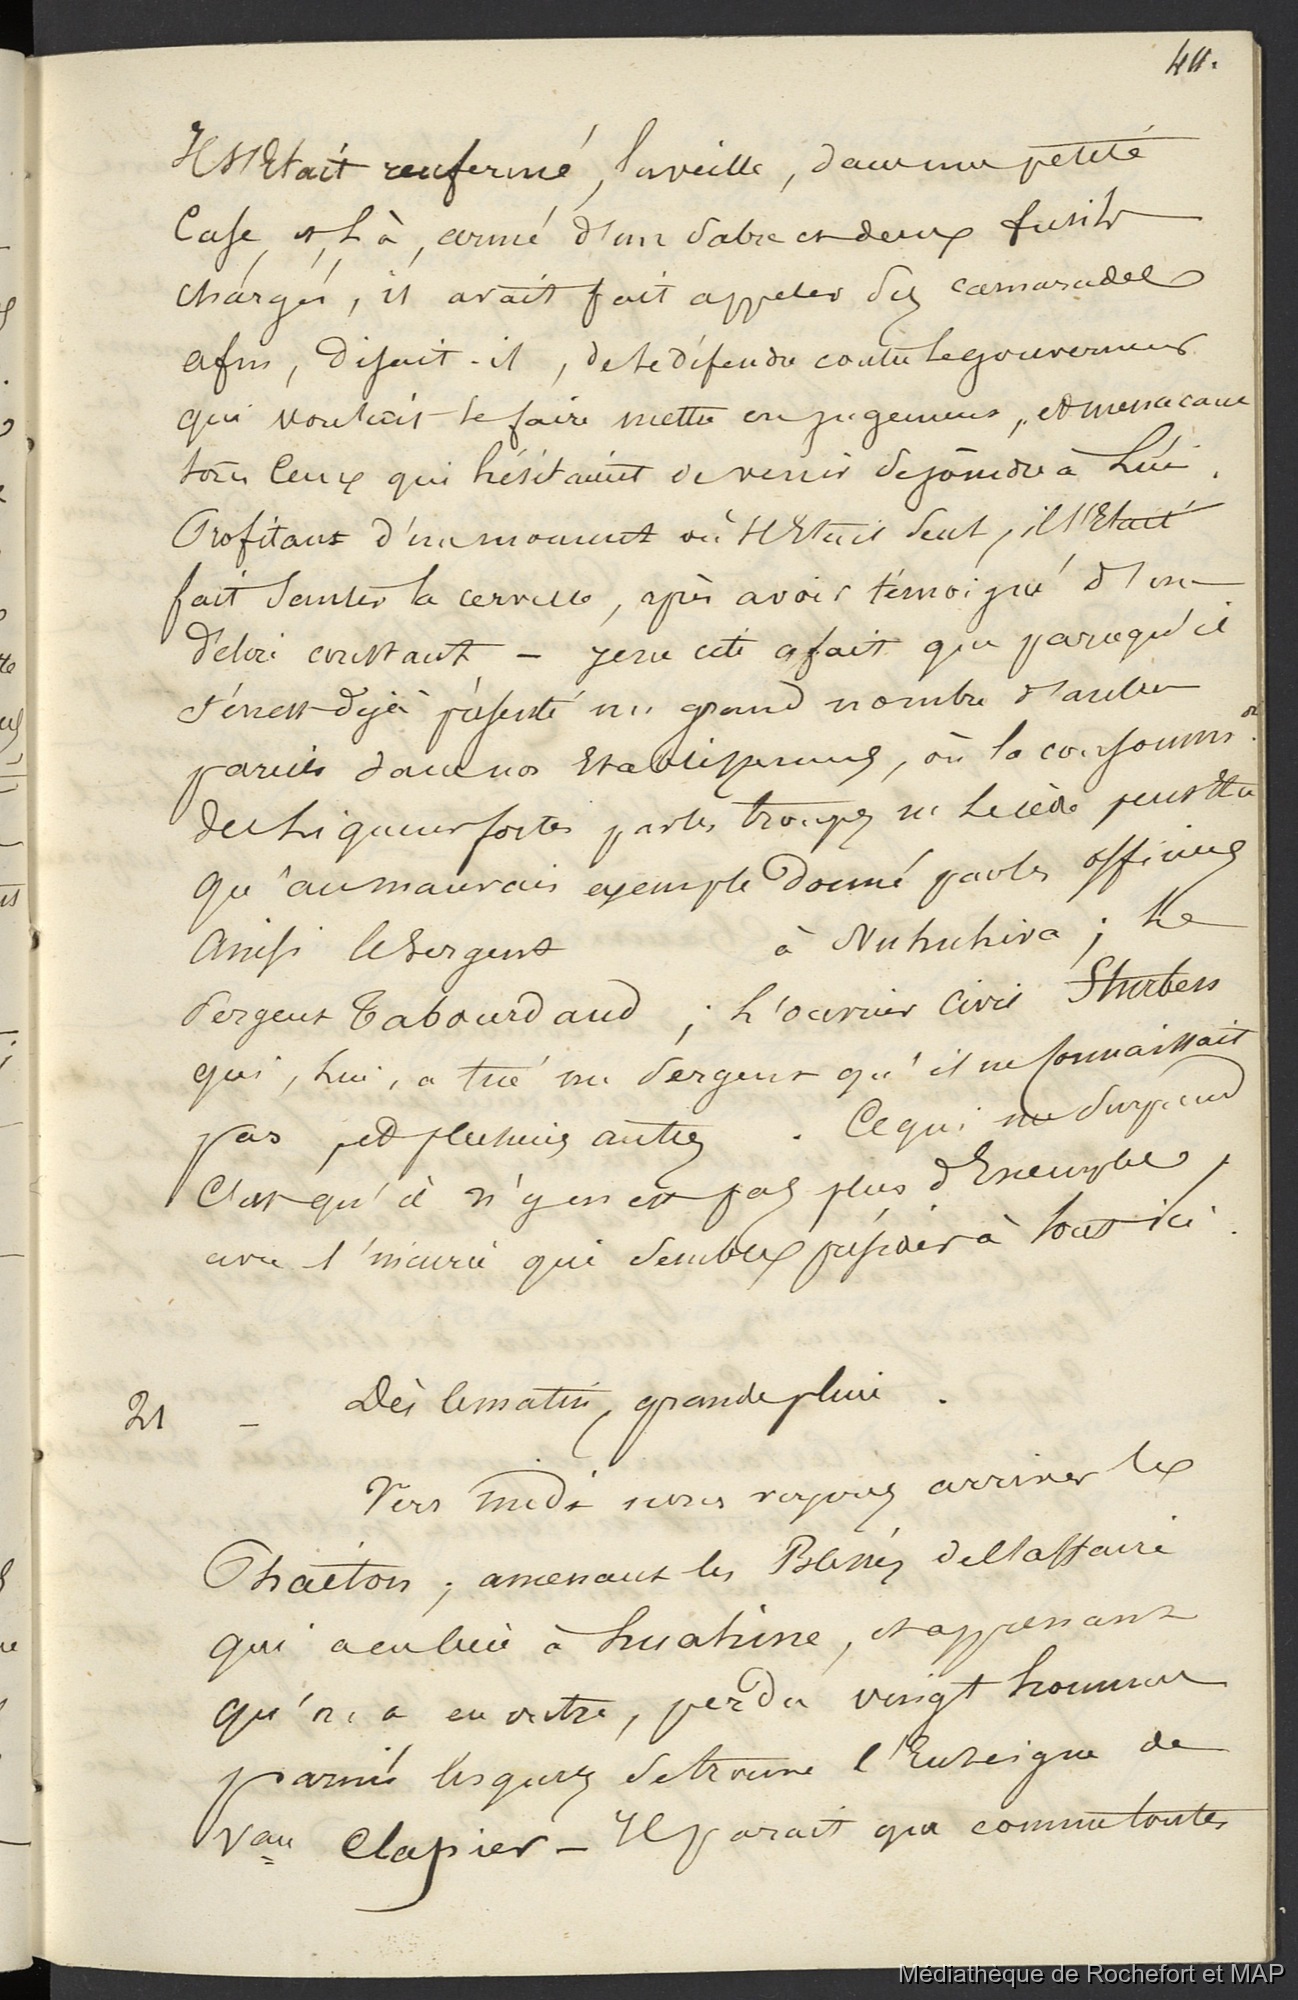 Il s'était renfermé, la veille, dans une petite
Case, et là, armé d'un sabre et deux fusils
chargés, il avait fait appeler ses camarades
afin, disait-il, de le défendre contre le gouverneur
qui voulait le faire mettre en jugement, et menacant
tous ceux qui hésitaient de venir se joindre à lui.
Profitant d'un moment où il était seul, il s'était
fait sauter la cervelle, après avoir témoigné d'un
délire constant - je ne cite ce fait que parcequ'il
s'en est déjà présenté un grand nombre d'autres
pareils dans nos établissemens, où la consomm.on
des liqueurs fortes par les troupes ne le cède peut être
qu'au mauvais exemple donné par les officiers
Ainsi le sergent à Nuhuhiva ; Le
Sergent Tabourdaud ; l'ouvrier civil
qui, lui, a tué un sergent qu'il ne connaissait
pas, et plusieurs autres. Ce qui me surprend
C'est qu'il n'y en est pas plus d'Exemples,
avec l'incurie qui semble présider à tout ici.
21 - Dès le matin, grande pluie.
Vers midi nous voyons arriver le
Phaéton ; amenant les Blessés de l'affaire
qui a eu lieu à huahine, et apprenant
qu'on a en outre, perdu vingt hommes
parmi lesquels se trouve l'Enseigne de
Vau Clapier - Il parait que comme toutes
Médiathèque de Rochefort et MAP